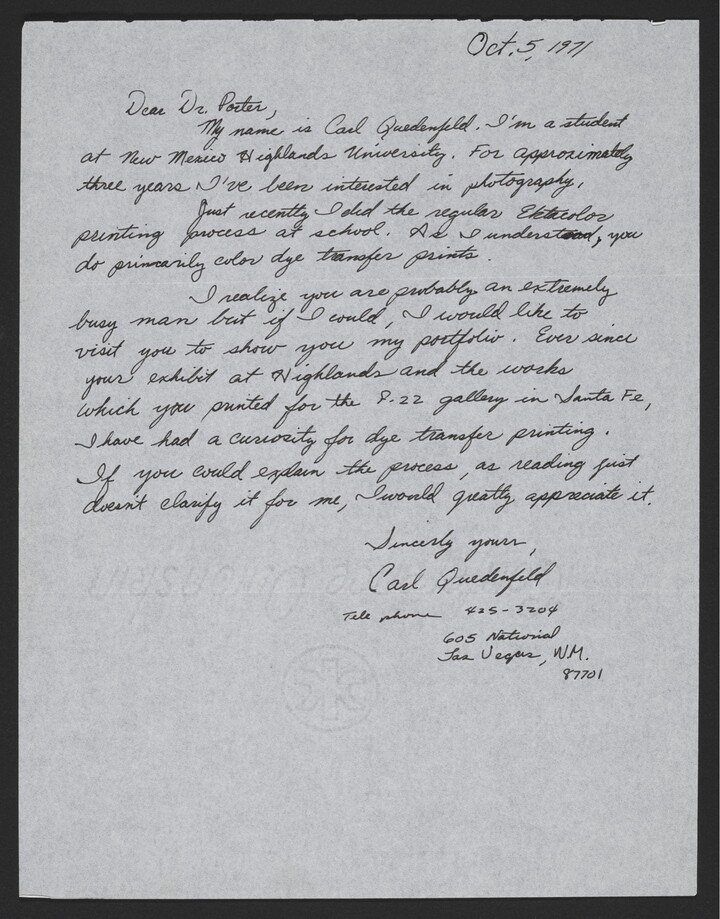 Oct. 5, 1971
Dear Dr. Porter,
My name is Carl Quedenfeld. I'm a student
at New Mexico Highlands University. For approximately
three years I've been interested in photography.
Just recently I did the regular Ektacolor
printing process at school. As I understand, you
do primarily color dye transfer prints.
I realize you are probably an extremely
busy man but if I could, I would like to
visit you to show you my portfolio. Ever since
your exhibit at Highlands and the works
which you printed for the P-22 gallery in Santa Fe,
I have had a curiosity for dye transfer printing.
If you could explain the process, as reading just
doesn't clarify it for me, I would greatly appreciate it.
Sincerly yours,
Carl Quedenfeld
Tele phone 425-3204
605 National
Las Vegas, N.M.
87701